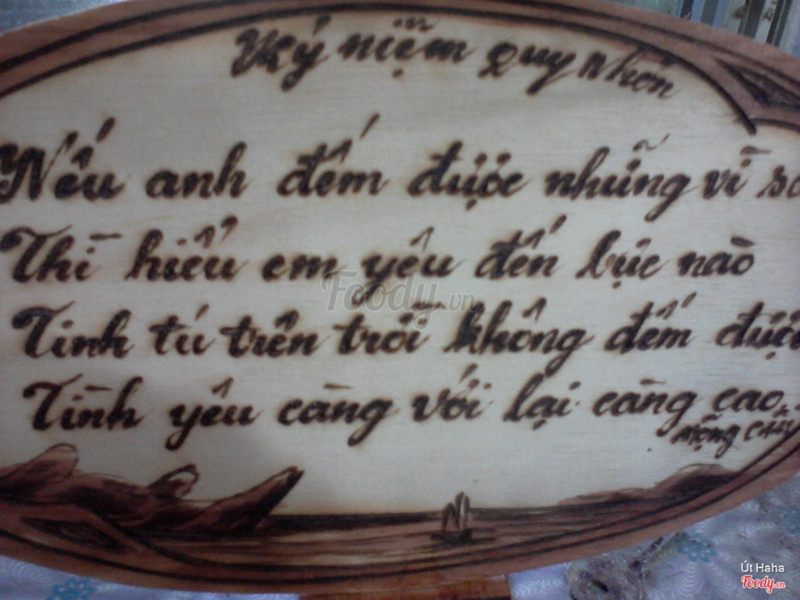 Kỷ niệm Quy Nhơn
Nếu anh đếm được những vì
Thì hiểu em yêu đến bực nào
Tinh tú trên trời không đếm được
Tình yêu càng với lại càng cao
Mộng Cầm
Foody.vn
Út Haha
Foody.vn